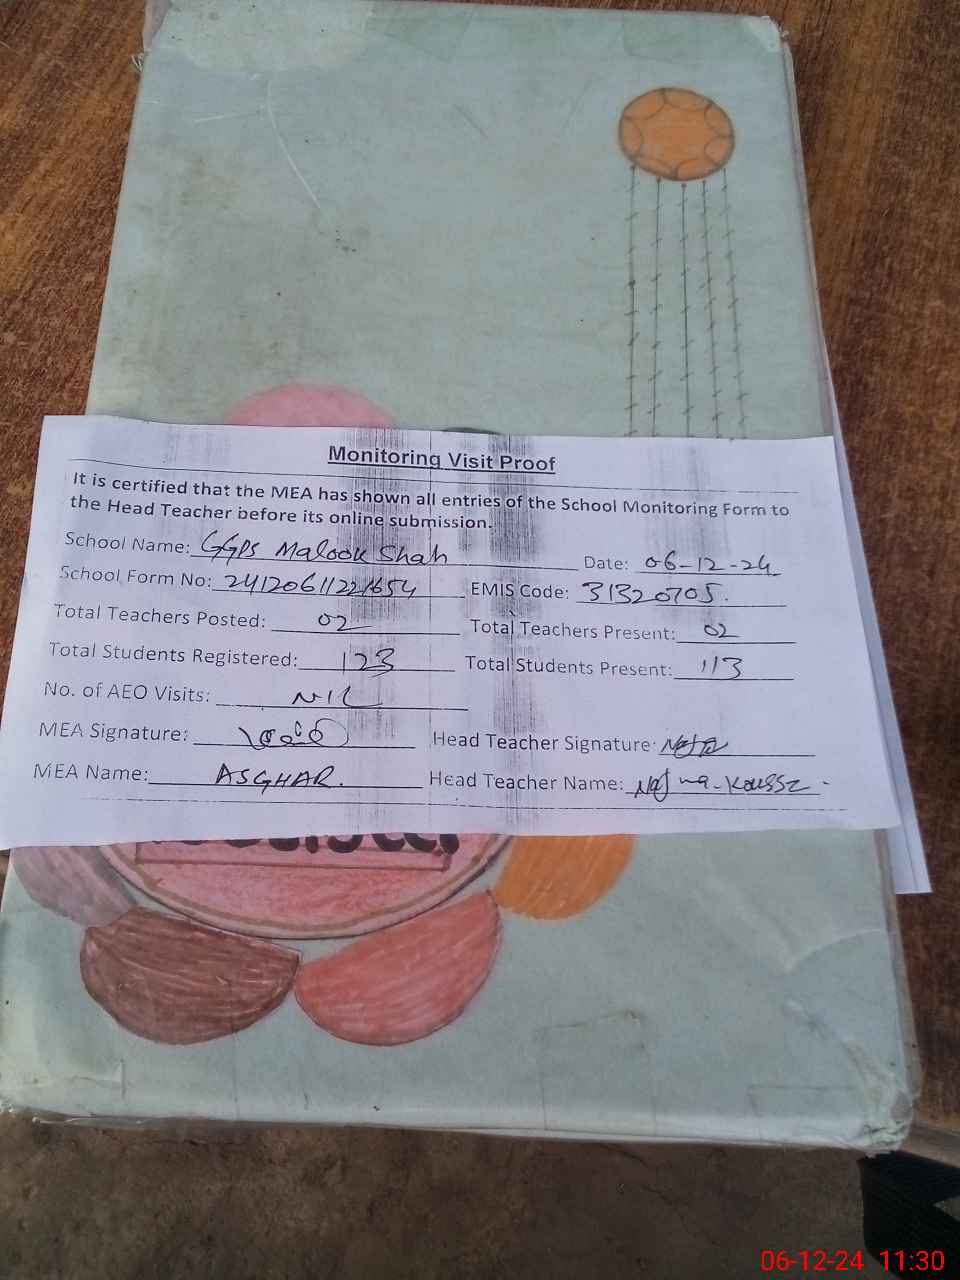 Monitoring Visit Proof
It is certified that the MEA has shown all entries of the School Monitoring Form to
the Head Teacher before its online submission.
School Name: GGPS Malook Shah Date: 06-12-24
School Form No: 24120611221654 EMIS Code: 31320705.
Total Teachers Posted: 02 Total Teachers Present: 02
Total Students Registered: 123 Total Students Present: 113
No. of AEO Visits: NIL
MEA Signature: Head Teacher Signature:
MEA Name: ASGHAR. Head Teacher Name: Najma
06-12-24 11:30